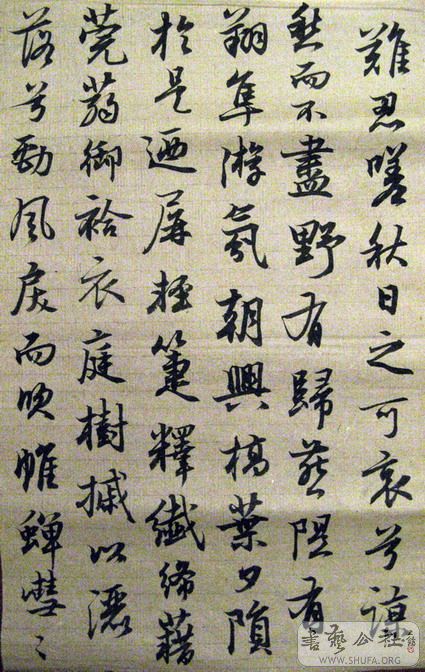 難忍嗟秋日之可哀兮諒
愁而不盡野有歸燕隰有
翔隼游氛朝興槁葉夕隕
於是迺屏輕箑釋纖絺藉
莞蒻御袷衣庭樹槭以灑
落兮勁風戾而吹帷蟬嘒々
書藝公社
WWW.SHUFA.ORG